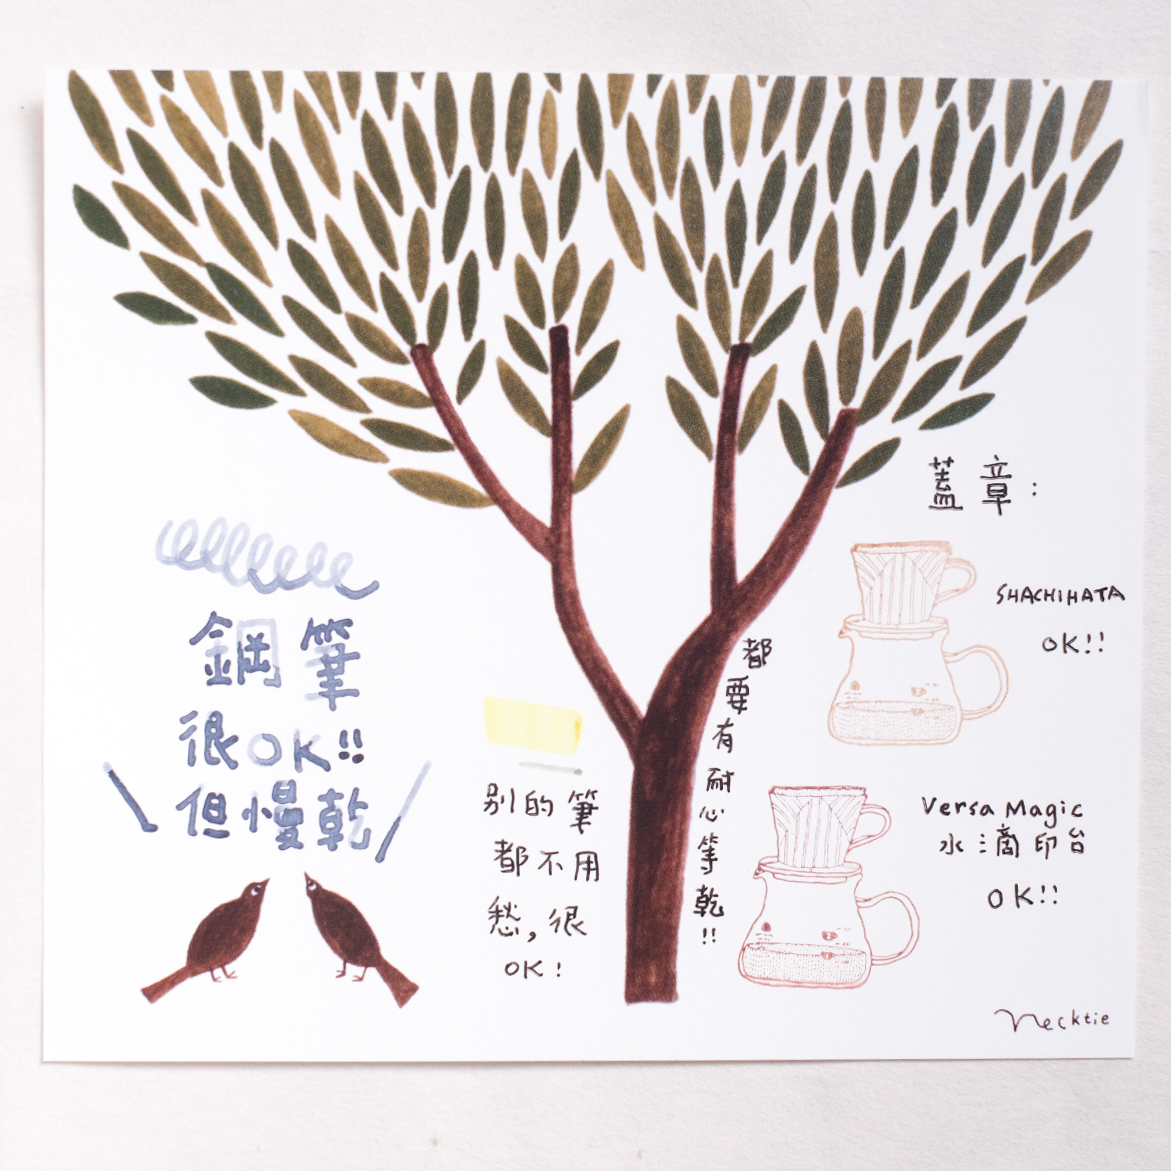 鋼筆
很OK!!
但慢乾
別的筆
都不用
愁,很
OK!
都要有耐心等乾!!
蓋章:
SHACHIHATA
OK!!
Versa Magic
水滴印台
OK!!
Necktie